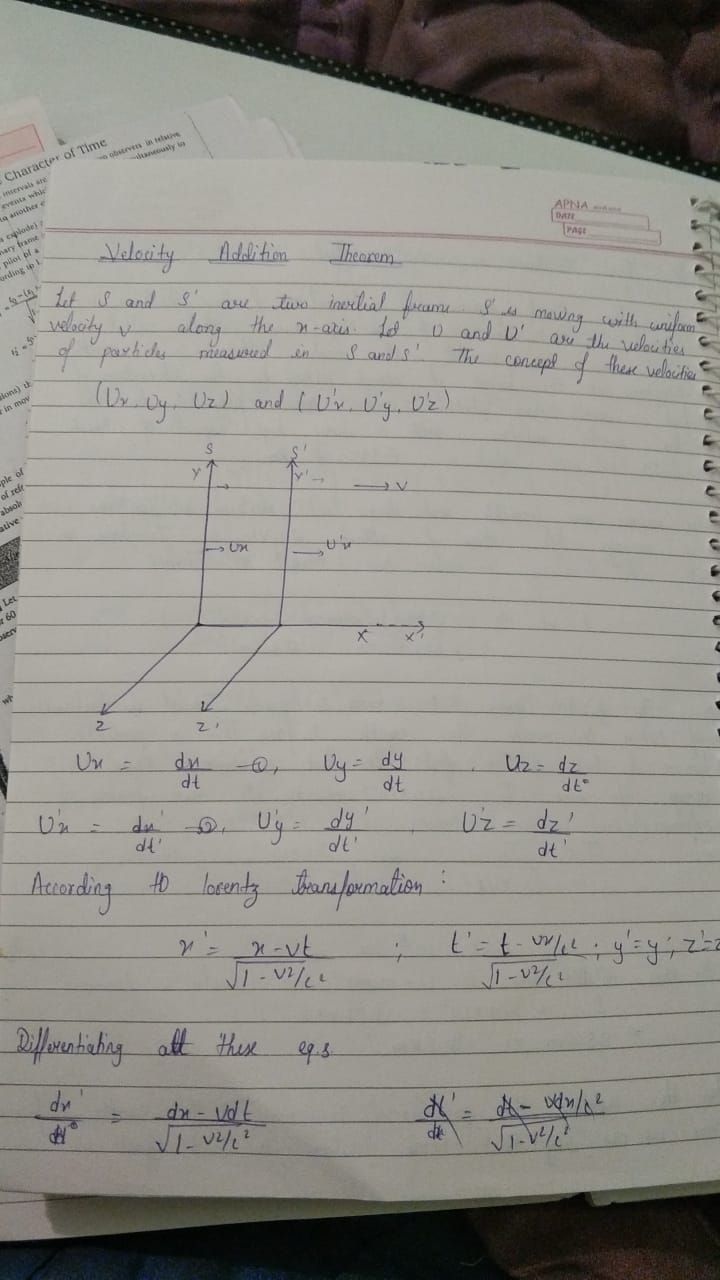 Character of Time
observers in relative
intervals are
simultaneously to
events which
to another
explode)
pilot of a
APNA
DATE
PAGE
Velocity Addition Theorem
Let S and S' are two inertial frame. S' is moving with uniform
velocity v along the x-axis. Let U and U' are the velocities
of particles measured in S and S'. The concept of these velocities
(Ux, Uy, Uz) and (U'x, U'y, U'z)
S S'
Y Y' → V
→ Ux → U'x
X X'
Z Z'
Ux = dx/dt —①, Uy = dy/dt , Uz = dz/dt
U'x = dx'/dt' —②, U'y = dy'/dt' , U'z = dz'/dt'
According to lorentz transformation :
x' = x-vt/√1-v²/c² ; t' = t-vx/c²/√1-v²/c² ; y'=y ; z'=z
Differentiating all these eq.s
dx' = dx-vdt/√1-v²/c² dt' = dt-vdx/c²/√1-v²/c²